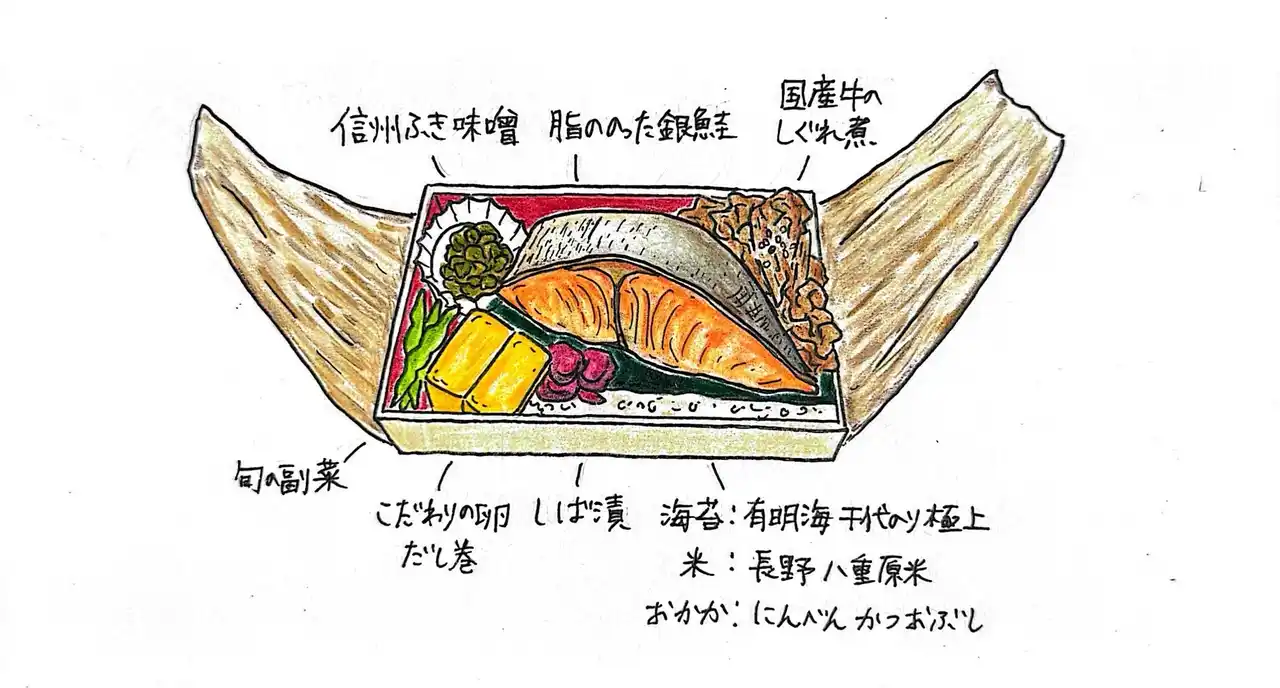 信州ふき味噌
脂ののった銀鮭
国産牛の
しぐれ煮
旬の副菜
こだわりの卵
だし巻
しば漬
海苔：有明海 千代のり 極上
米：長野 八重原米
おかか：にんべん かつおぶし